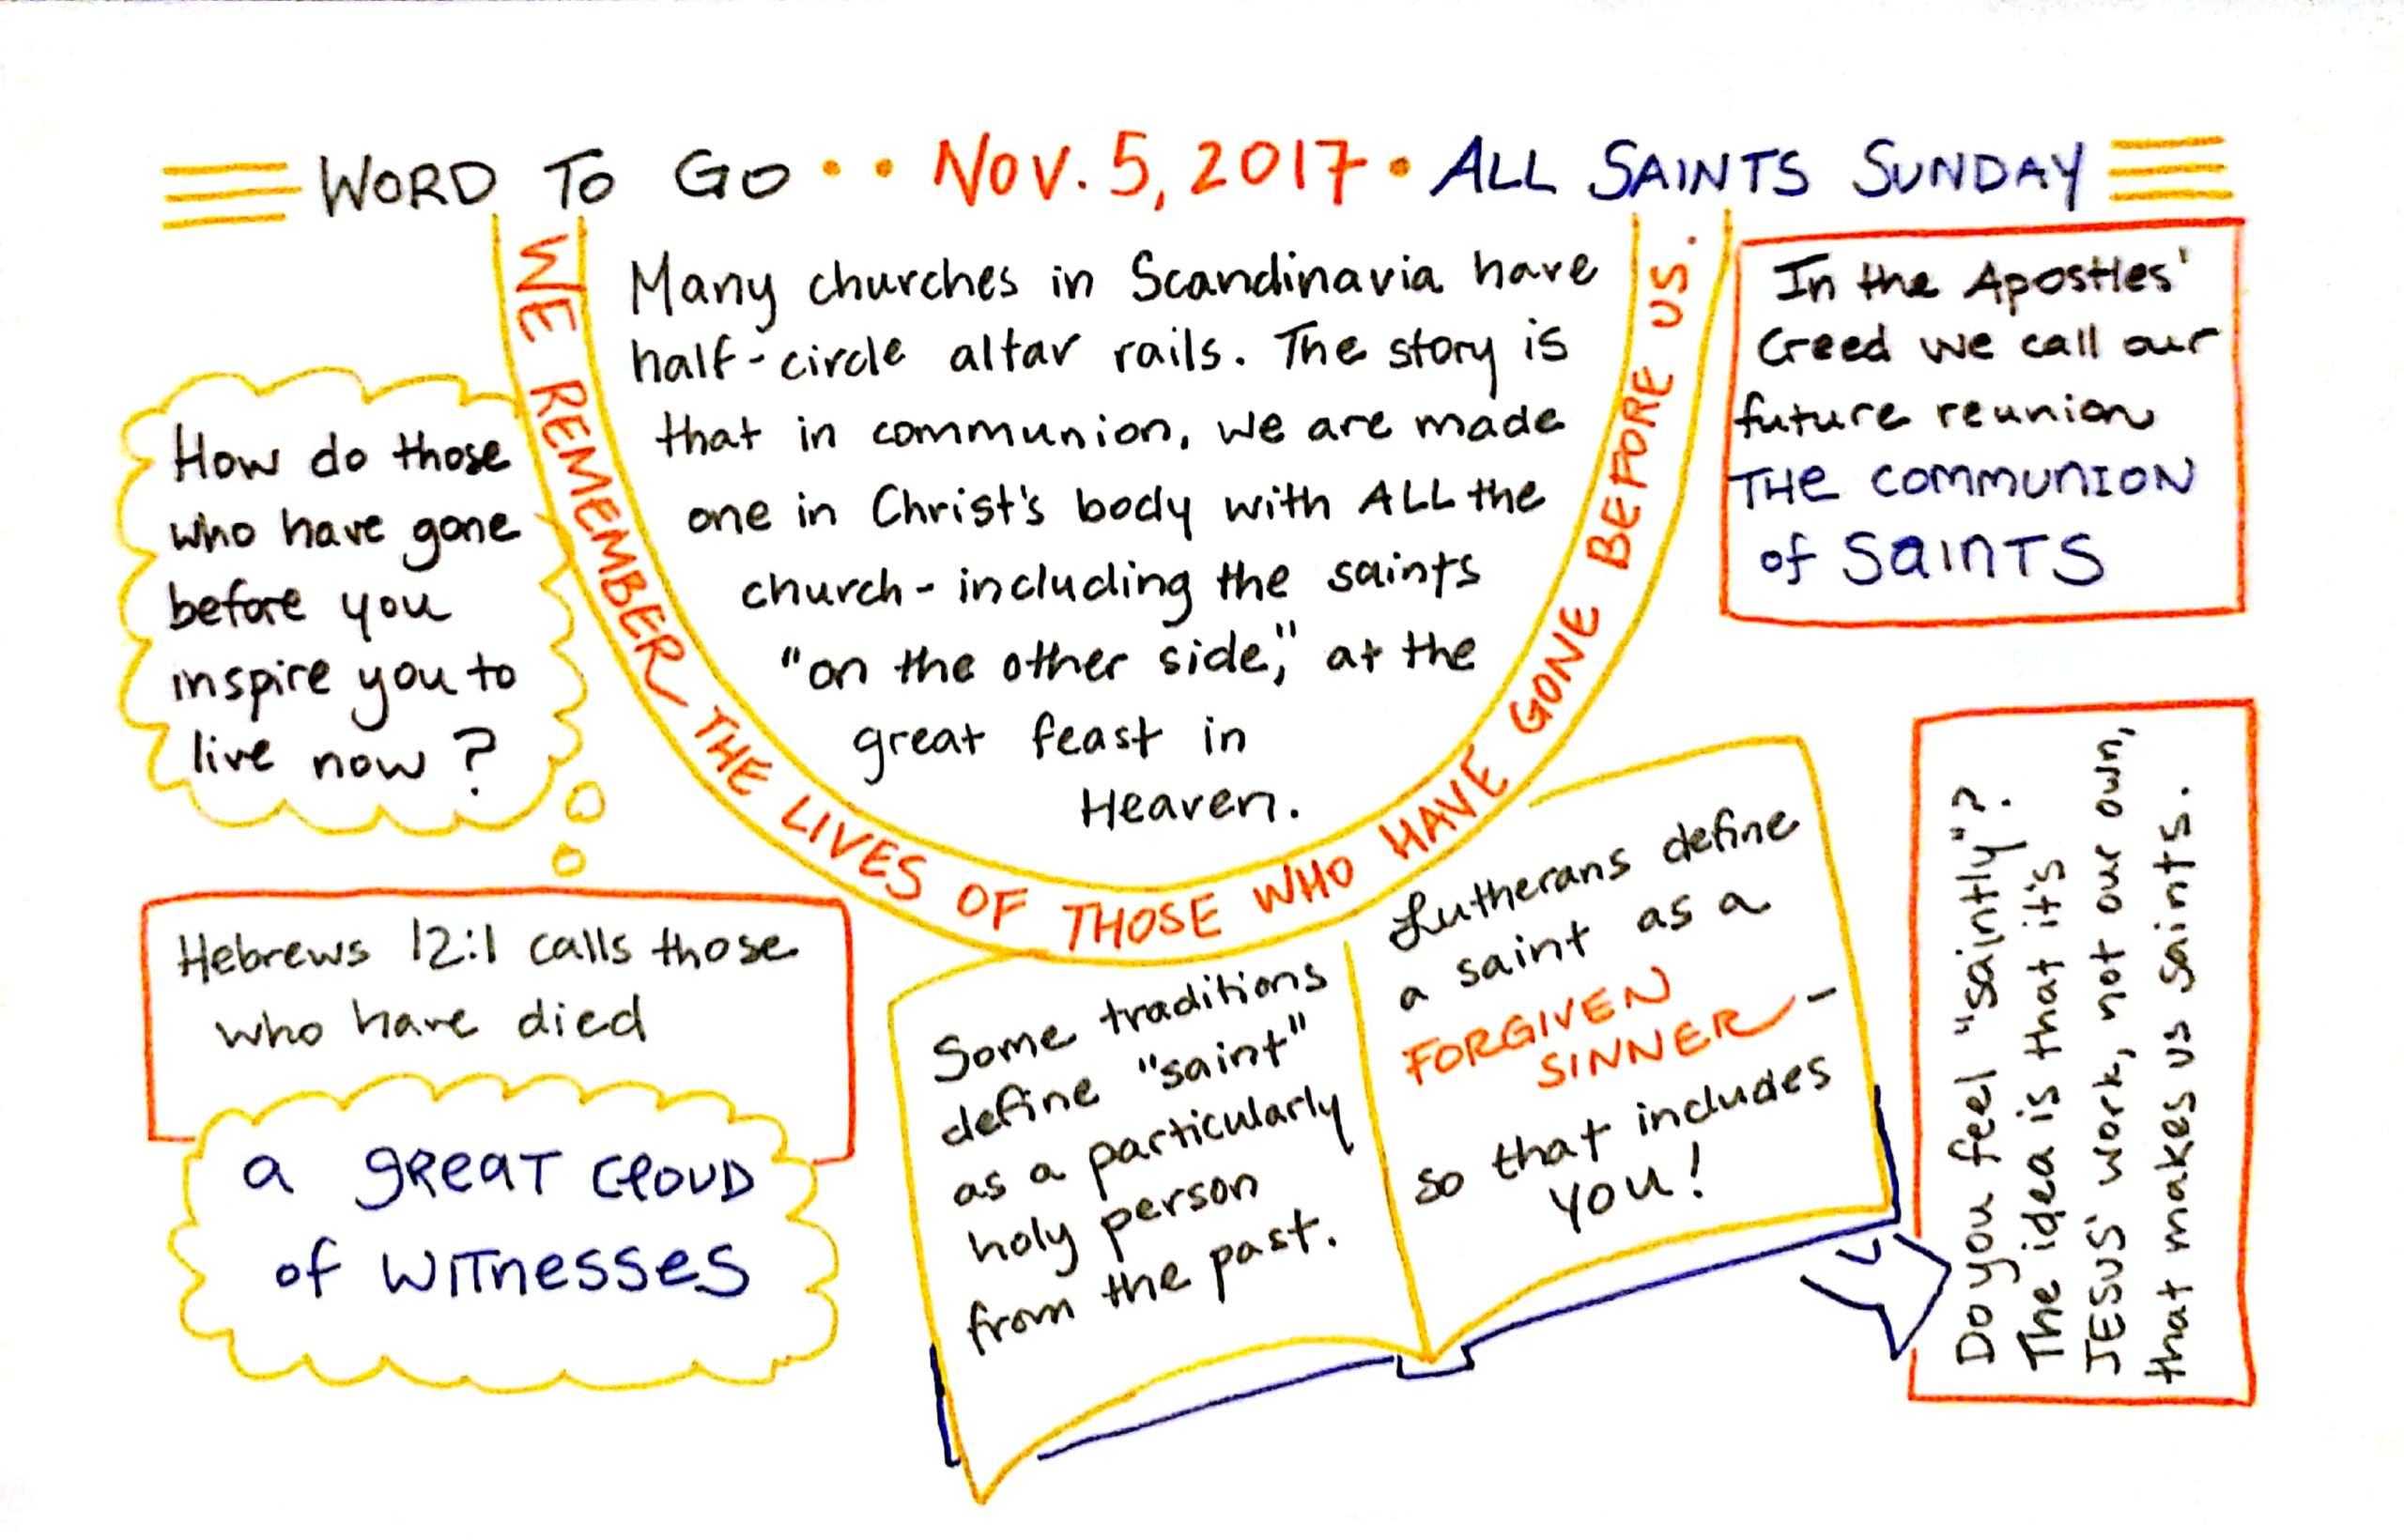 WORD TO GO • • NOV. 5, 2017 • ALL SAINTS SUNDAY
WE REMEMBER THE LIVES OF THOSE WHO HAVE GONE BEFORE US.
Many churches in Scandinavia have
half-circle altar rails. The story is
that in communion, we are made
one in Christ's body with ALL the
church - including the saints
"on the other side," at the
great feast in
Heaven.
In the Apostles'
Creed we call our
future reunion
THE COMMUNION
of SAINTS
How do those
who have gone
before you
inspire you to
live now?
Hebrews 12:1 calls those
who have died
a GREAT CLOUD
of WITNESSES
Some traditions
define "saint"
as a particularly
holy person
from the past.
Lutherans define
a saint as a
FORGIVEN
SINNER -
so that includes
YOU!
Do you feel "saintly"?
The idea is that it's
JESUS' work, not our own,
that makes us saints.